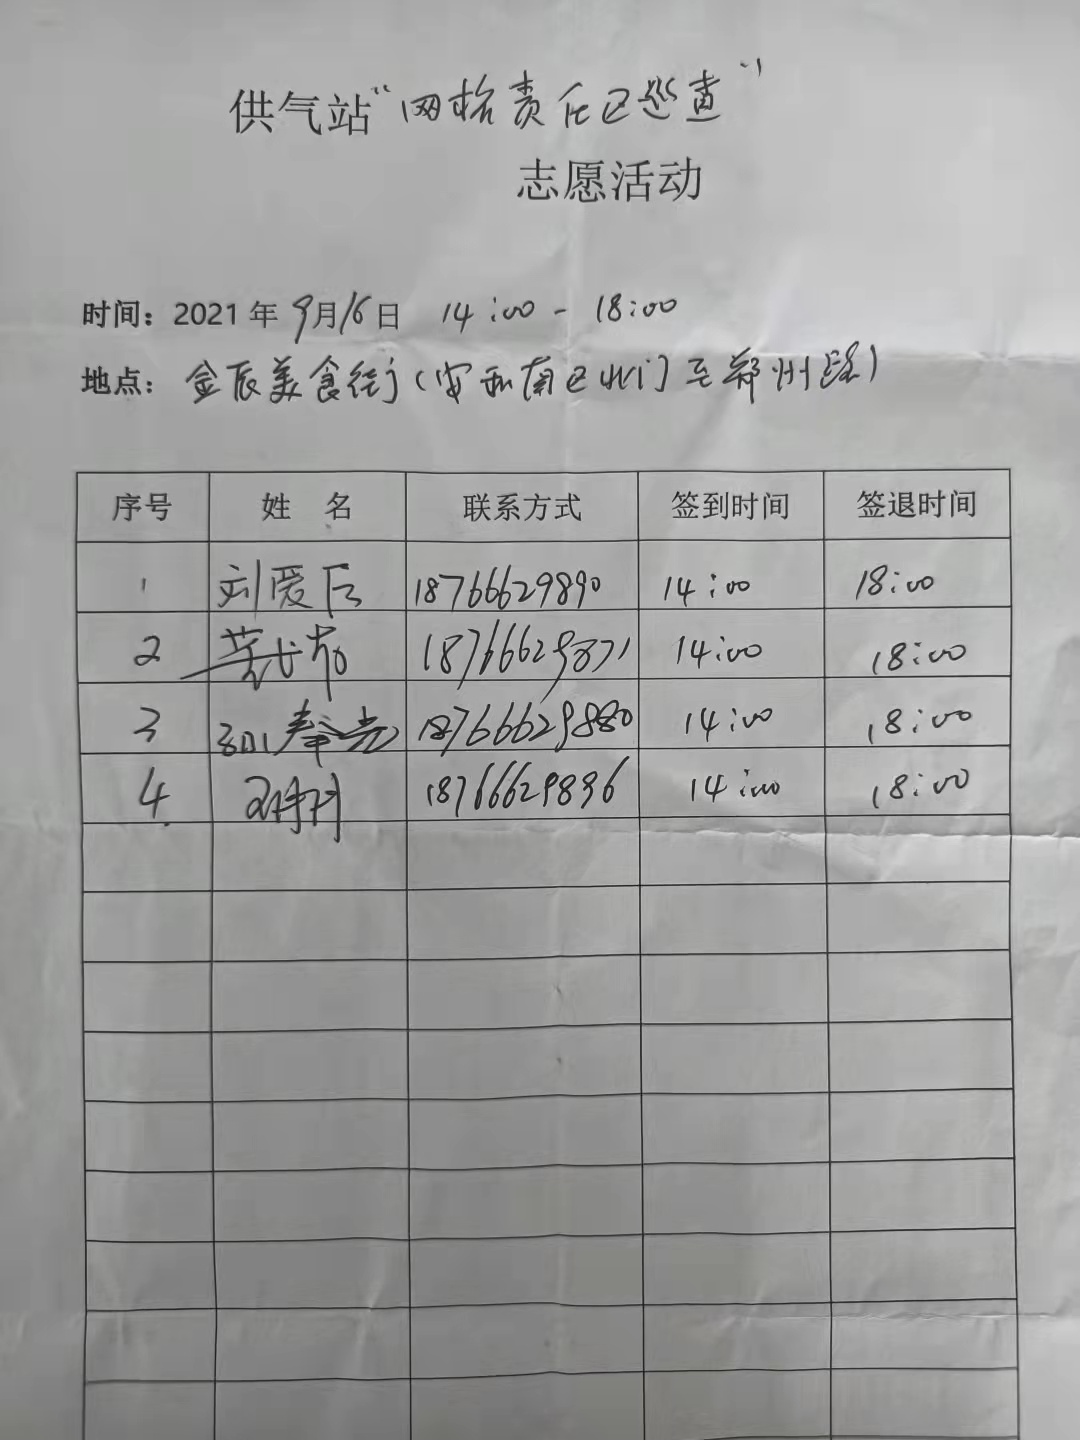 供气站“网格责任区巡查”
志愿活动
时间：2021年9月16日 14:00-18:00
地点：金辰美食街(安和南区北门至郑州路)
序号 姓名 联系方式 签到时间 签退时间
1 刘爱后 18766629890 14:00 18:00
2 18766629871 14:00 18:00
3 18766629880 14:00 18:00
4 18766629896 14:00 18:00